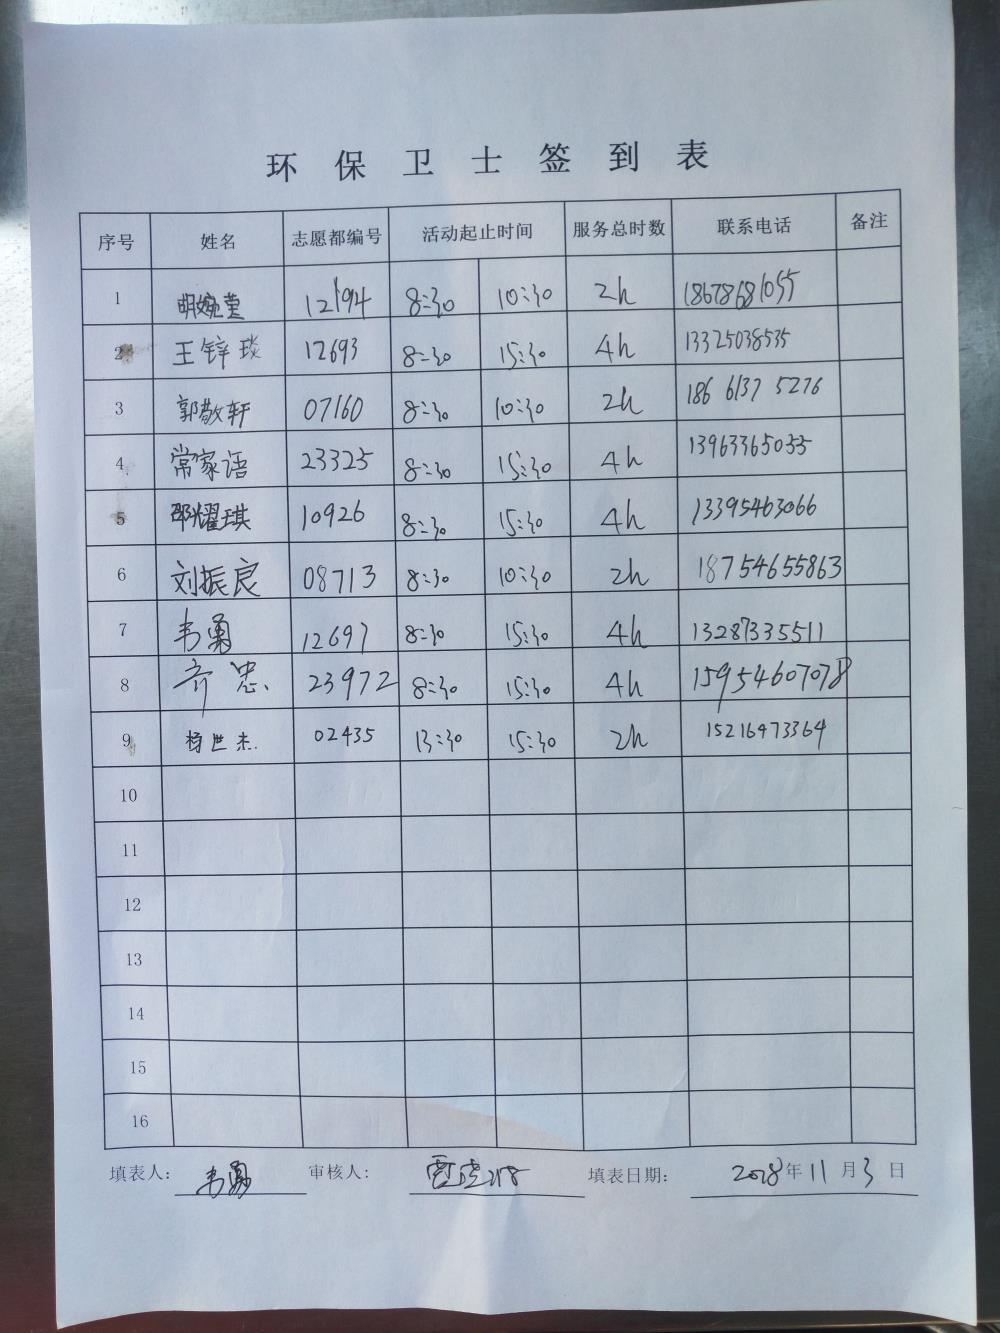 环保卫士签到表
序号 姓名 志愿都编号 活动起止时间 服务总时数 联系电话 备注
1 明婉莹 12194 8:30 10:30 2h 18678681055
2 王锌琰 12693 8:30 15:30 4h 13325038535
3 郭敬轩 07160 8:30 10:30 2h 186 6137 5276
4 常家语 23325 8:30 15:30 4h 13963365055
5 邵耀琪 10926 8:30 15:30 4h 13395463066
6 刘振良 08713 8:30 10:30 2h 18754655863
7 韦勇 12697 8:30 15:30 4h 13287335511
8 齐忠 23972 8:30 15:30 4h 15954607078
9 杨世杰 02435 13:30 15:30 2h 15216473364
10
11
12
13
14
15
16
填表人: 韦勇 审核人: 填表日期: 2018年11月3日